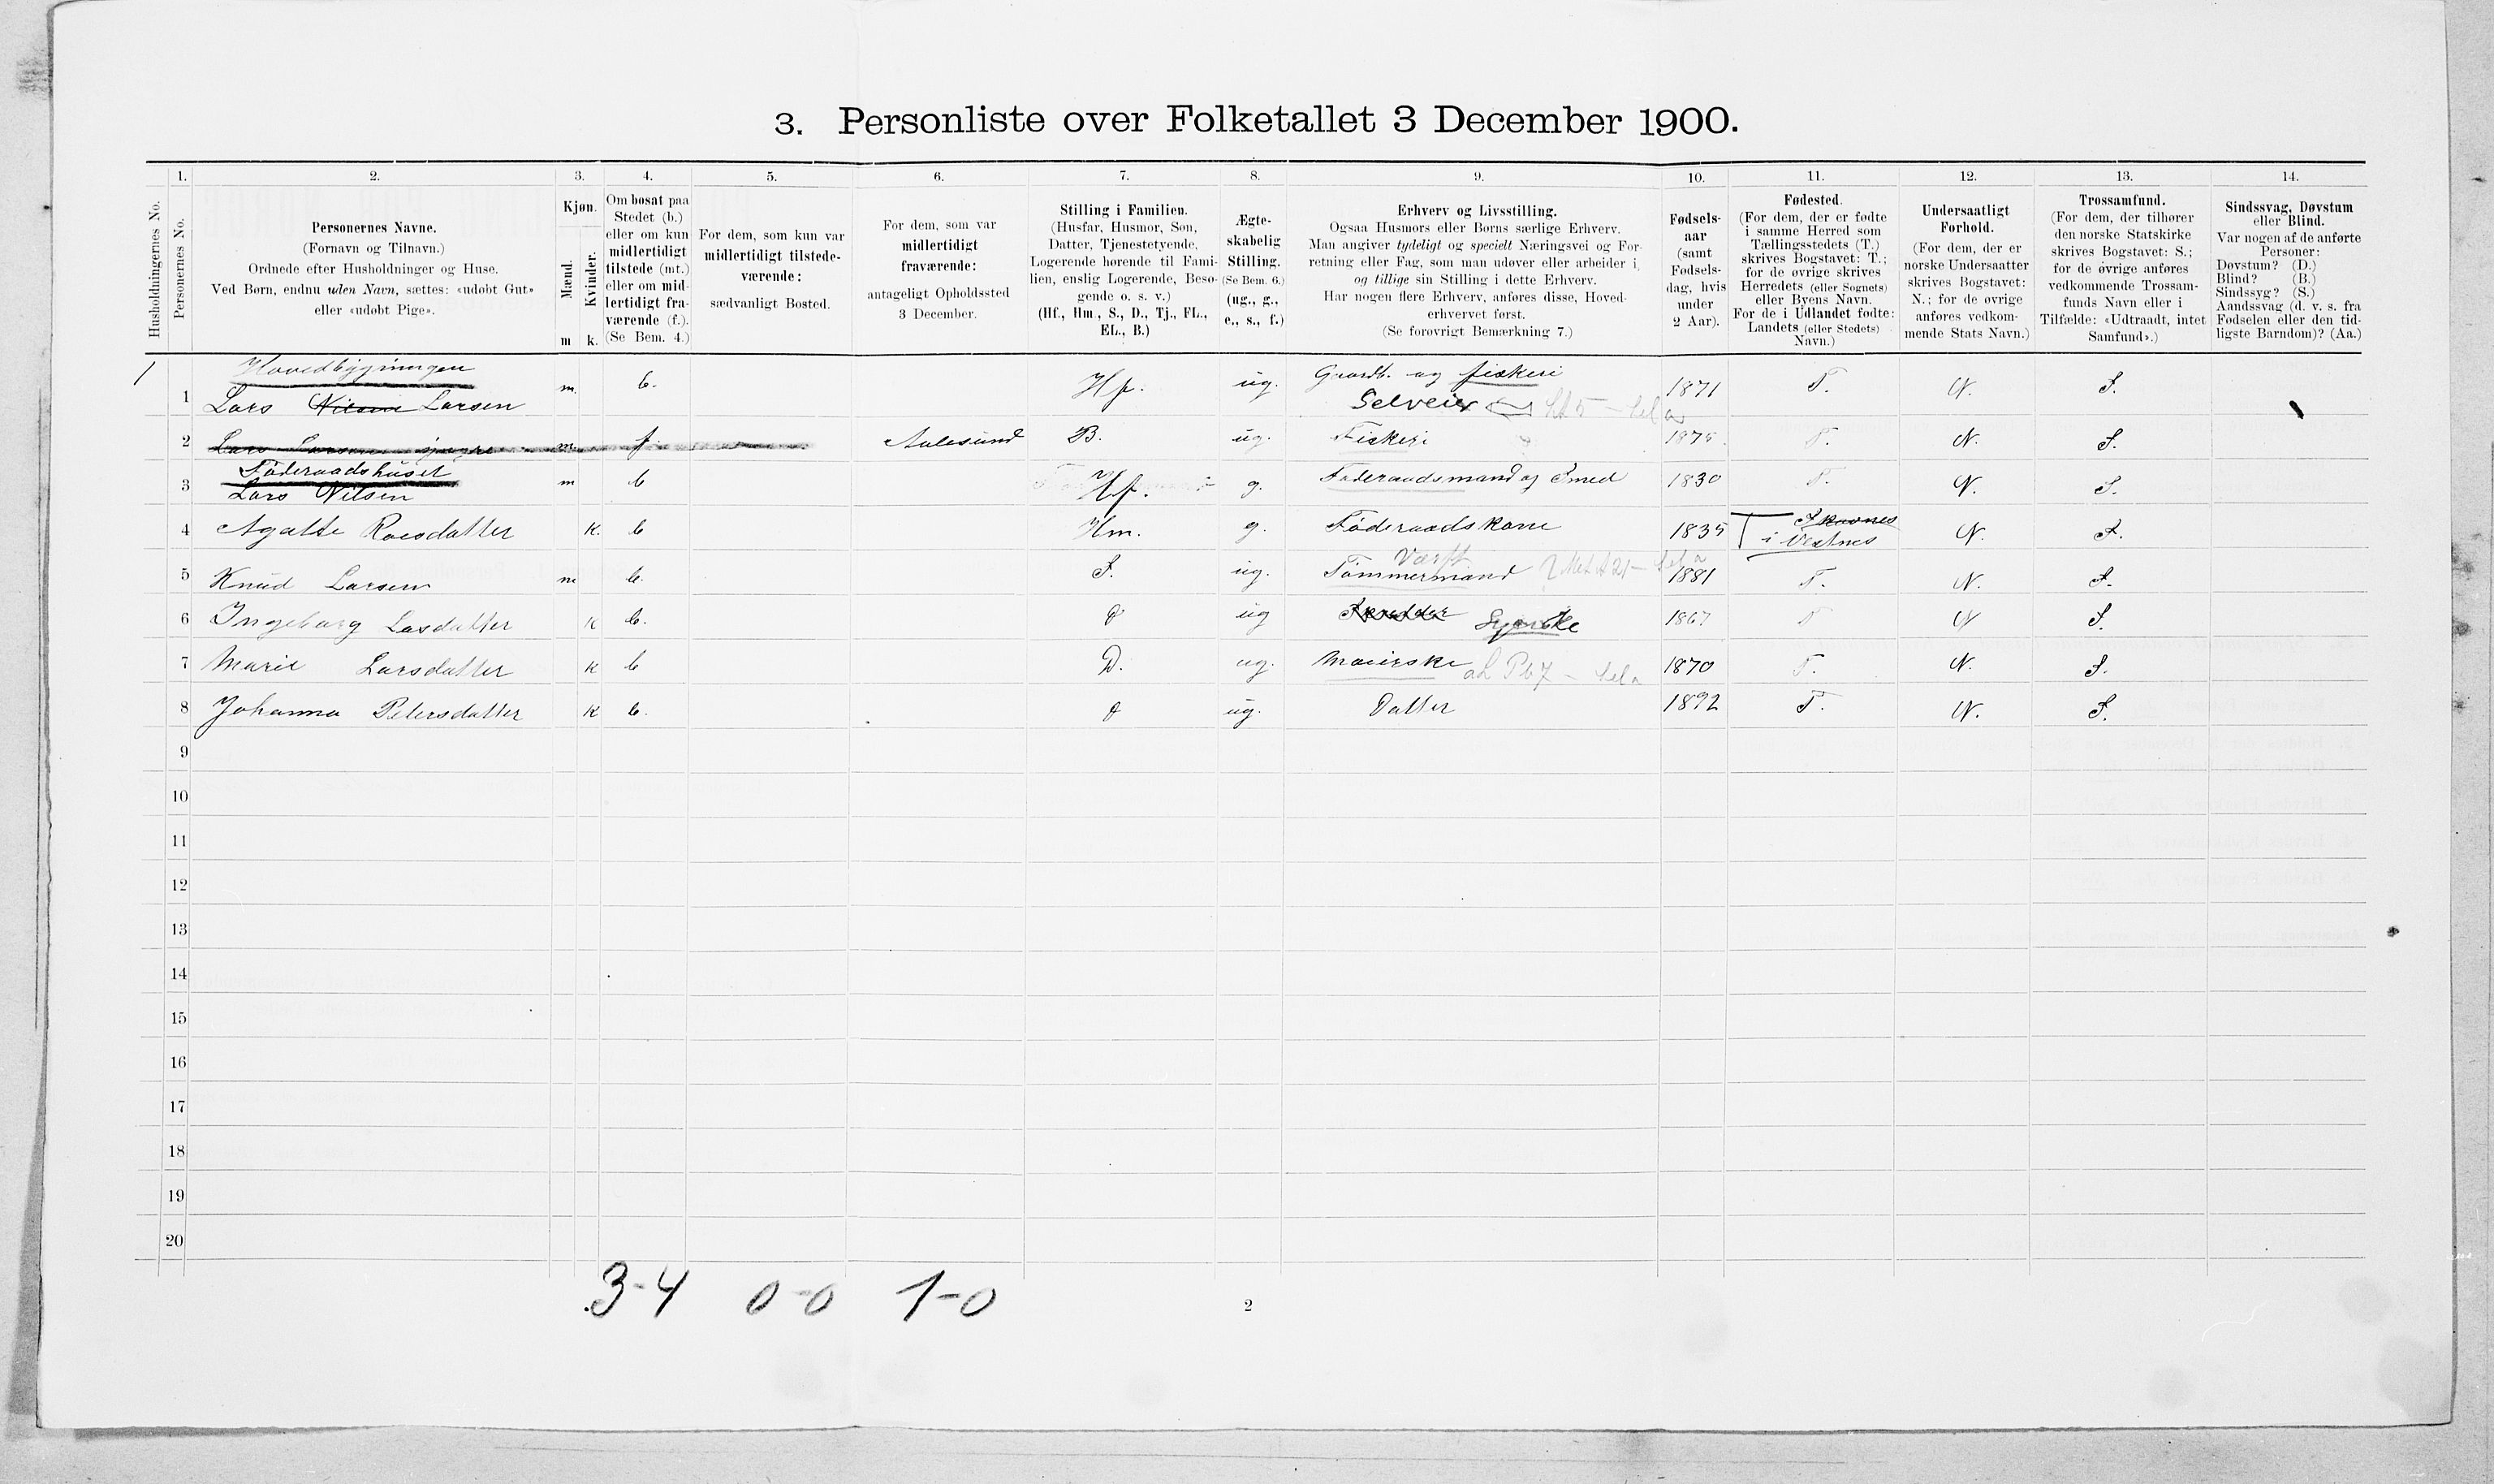 3. Personliste over Folketallet 3 December 1900.
Husholdningernes No.
1.
Personernes No.
2.
Personernes Navne.
(Fornavn og Tilnavn.)
Ordnede efter Husholdninger og Huse.
Ved Børn, endnu uden Navn, sættes: «udøbt Gut»
eller «udøbt Pige».
3.
Kjøn.
Mænd.
Kvinder.
m k.
4.
Om bosat paa
Stedet (b.)
eller om kun
midlertidigt
tilstede (mt.)
eller om mid-
lertidigt fra-
værende (f.).
(Se Bem. 4.)
5.
For dem, som kun var
midlertidigt tilstede-
værende:
sædvanligt Bosted.
6.
For dem, som var
midlertidigt
fraværende:
antageligt Opholdssted
3 December.
7.
Stilling i Familien.
(Husfar, Husmor, Søn,
Datter, Tjenestetyende,
Logerende hørende til Fami-
lien, enslig Logerende, Besø-
gende o. s. v.)
(Hf., Hm., S., D., Tj., FL.,
EL., B.)
8.
Ægte-
skabelig
Stilling.
(Se Bem. 6.)
(ug., g.,
e., s., f.)
9.
Erhverv og Livsstilling.
Ogsaa Husmors eller Børns særlige Erhverv.
Man angiver tydeligt og specielt Næringsvei og For-
retning eller Fag, som man udøver eller arbeider i,
og tillige sin Stilling i dette Erhverv.
Har nogen flere Erhverv, anføres disse, Hoved-
erhvervet først.
(Se forøvrigt Bemærkning 7.)
10.
Fødsels-
aar
(samt
Fødsels-
dag, hvis
under
2 Aar).
11.
Fødested.
(For dem, der er fødte
i samme Herred som
Tællingsstedets (T.)
skrives Bogstavet: T.;
for de øvrige skrives
Herredets (eller Sognets)
eller Byens Navn.
For de i Udlandet fødte:
Landets (eller Stedets)
Navn.)
12.
Undersaatligt
Forhold.
(For dem, der er
norske Undersaatter
skrives Bogstavet:
N.; for de øvrige
anføres vedkom-
mende Stats Navn.)
13.
Trossamfund.
(For dem, der tilhører
den norske Statskirke
skrives Bogstavet: S.;
for de øvrige anføres
vedkommende Trossam-
funds Navn eller i
Tilfælde: «Udtraadt, intet
Samfund».)
14.
Sindssvag, Døvstum
eller Blind.
Var nogen af de anførte
Personer:
Døvstum? (D.)
Blind? (B.)
Sindssyg? (S.)
Aandssvag (d. v. s. fra
Fødselen eller den tid-
ligste Barndom)? (Aa.)
1 Hovedbygningen
1 Lars Nilsen Larsen m. b. Hf. ug. Gaardb. og fiskeri Selveier 1871 T. N. S.
2 Lars Larsen yngre m. f Aalesund B. ug. Fiskeri 1875. T. N. S.
Föderaadshuset
3 Lars Nilsen m b Hf. g. Föderaadsmand og Smed 1830 T. N. S.
4 Agathe Roesdatter K. b Hm. g. Föderaadskone 1835 Skavnes i Vestnes N. S.
Værft
5 Knud Larsen m b. S. ug. Tömmermand 1881 T. N. S.
6 Ingeborg Lasdatter K b. D ug Syerske 1867 T N S.
7 Marie Larsdatter K b D. ug. Meierske 1870 T. N. S.
8 Johanna Petersdatter K b. D ug. Datter 1892 T. N. S.
9
10
11
12
13
14
15
16
17
18
19
20
3-4 0-0 1-0
2